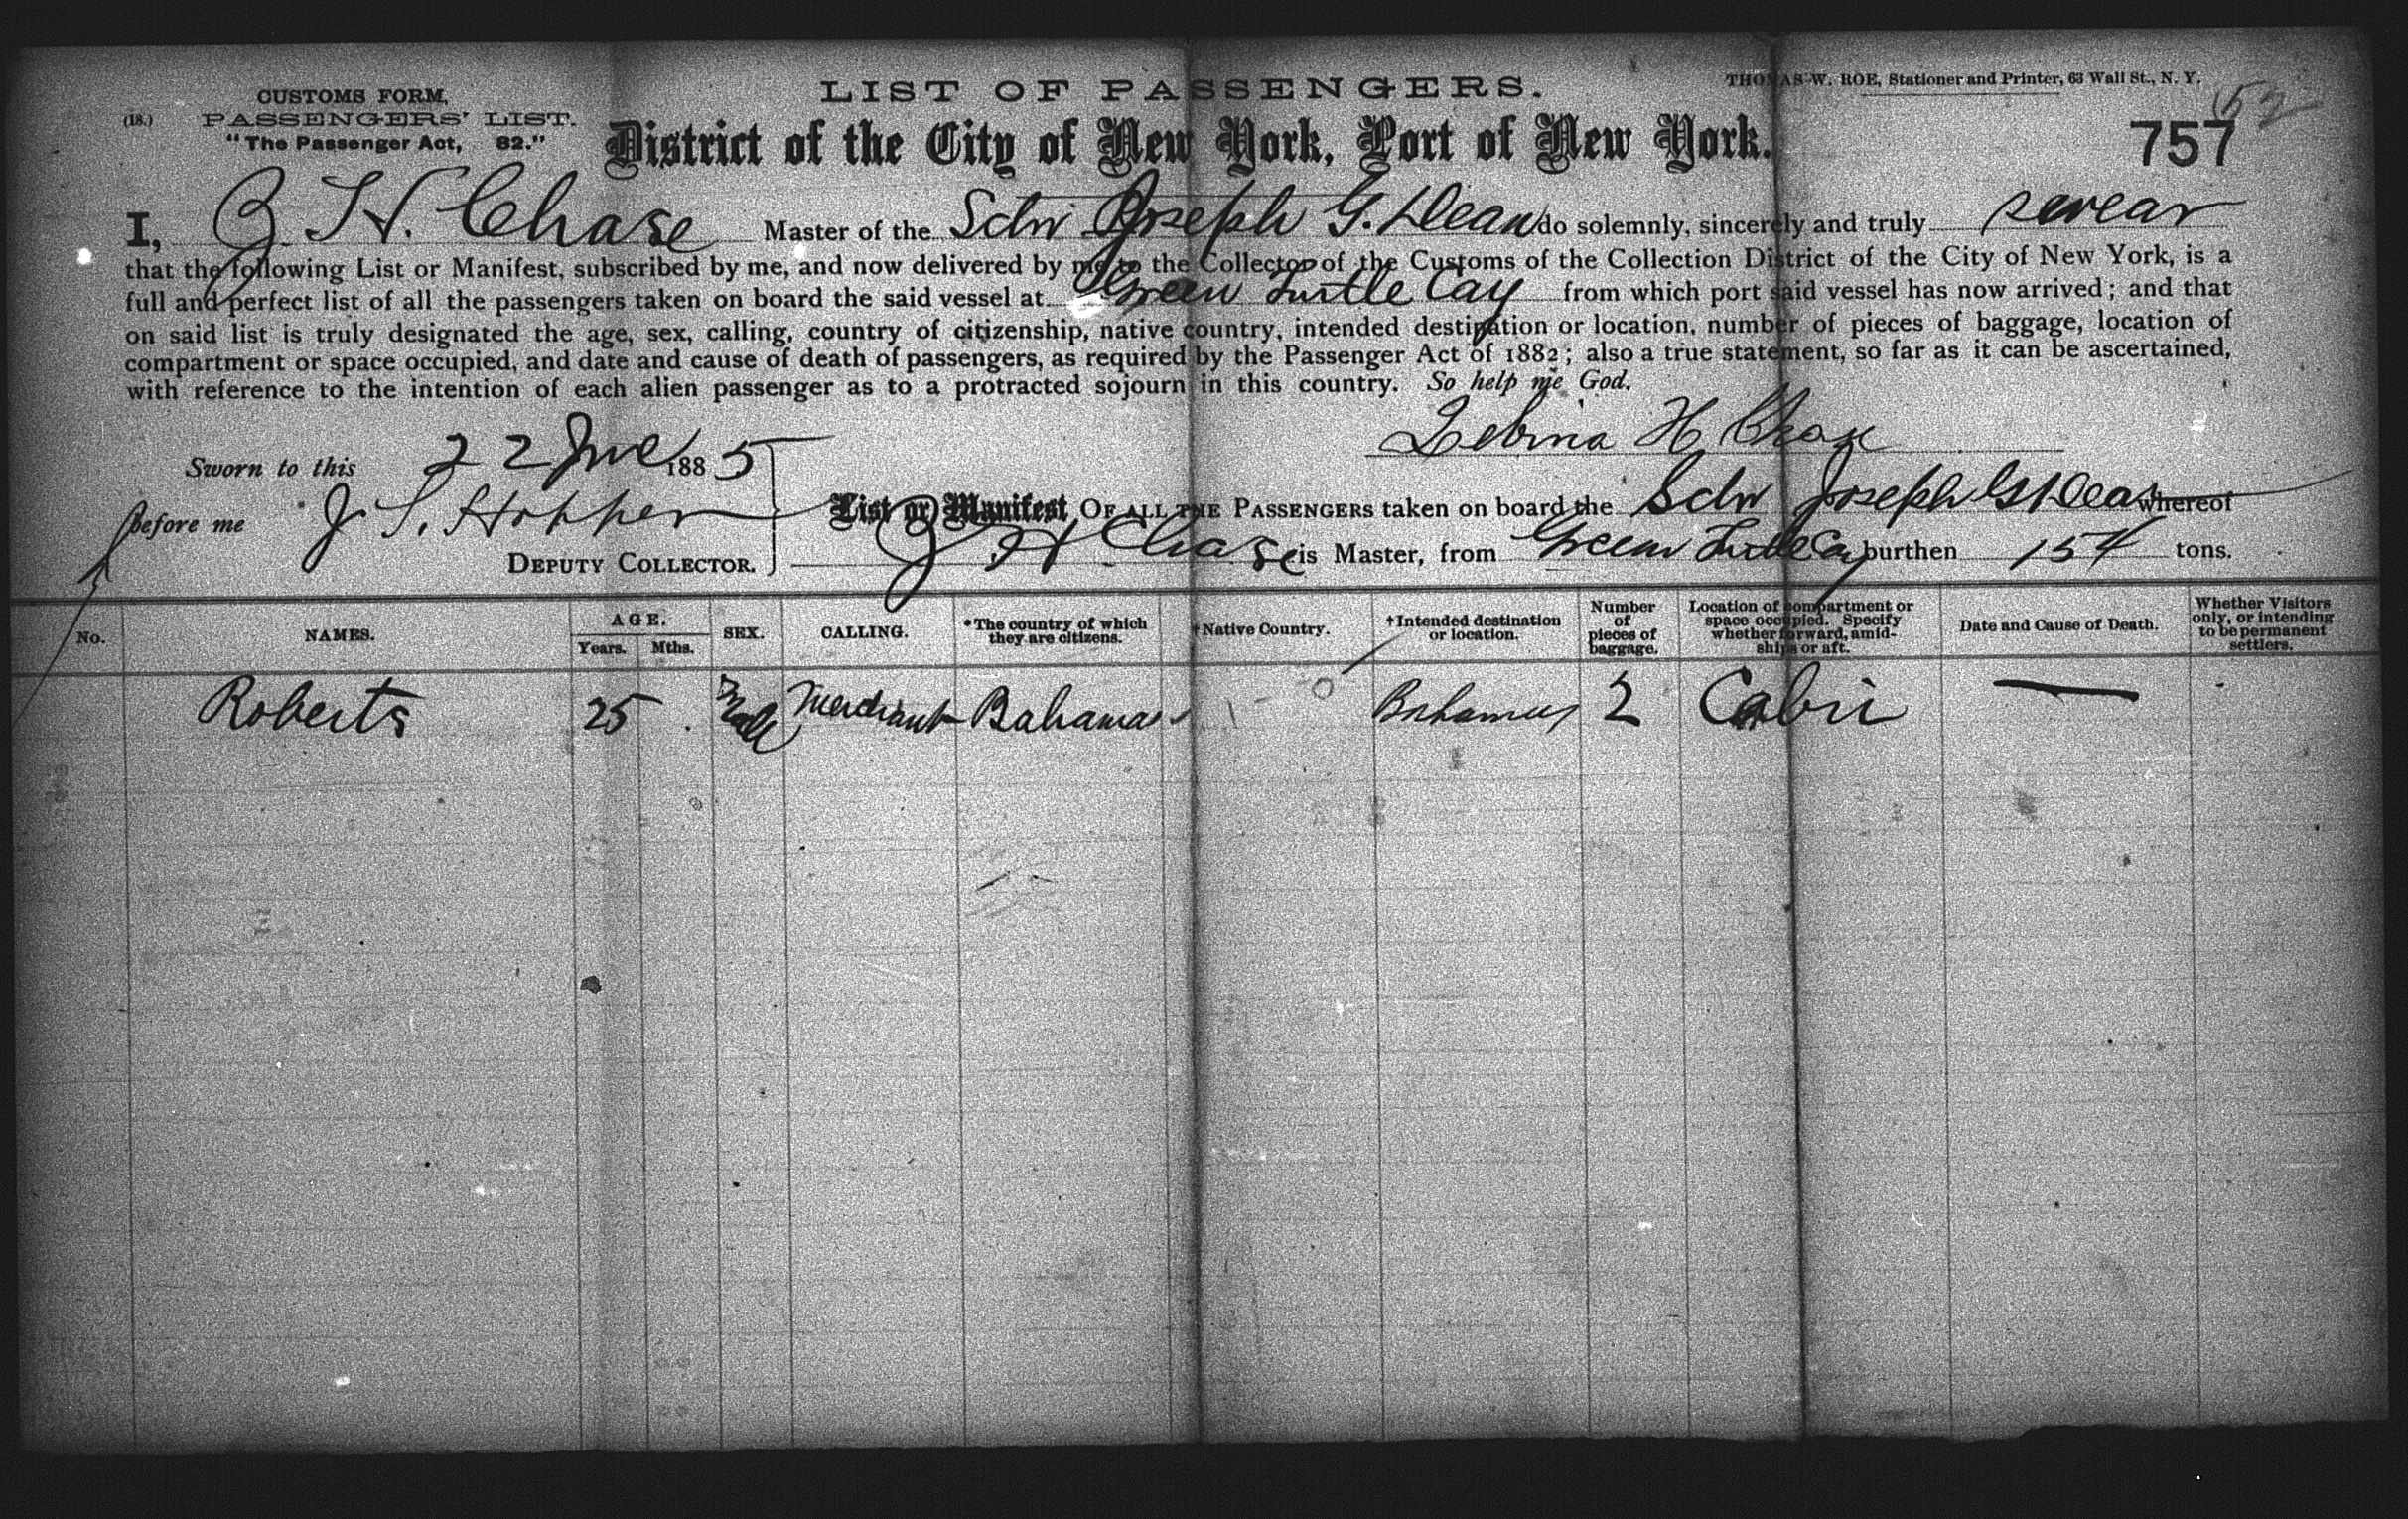 CUSTOMS FORM,
(18.) PASSENGERS' LIST.
"The Passenger Act, 82."
LIST OF PASSENGERS.
THOMAS W. ROE, Stationer and Printer, 63 Wall St., N. Y.
District of the City of New York, Port of New York.
152
757
I, Z H. Chase Master of the Schr Joseph G. Dean do solemnly, sincerely and truly swear
that the following List or Manifest, subscribed by me, and now delivered by me to the Collector of the Customs of the Collection District of the City of New York, is a
full and perfect list of all the passengers taken on board the said vessel at Green Turtle Cay from which port said vessel has now arrived; and that
on said list is truly designated the age, sex, calling, country of citizenship, native country, intended destination or location, number of pieces of baggage, location of
compartment or space occupied, and date and cause of death of passengers, as required by the Passenger Act of 1882; also a true statement, so far as it can be ascertained,
with reference to the intention of each alien passenger as to a protracted sojourn in this country. So help me God.
Zebina H Chase
Sworn to this 22 June 1885
before me J. S. Hopper
DEPUTY COLLECTOR.
List or Manifest OF ALL THE PASSENGERS taken on board the Schr Joseph G Dean whereof
Z H Chase is Master, from Green Turtle Cay burthen 154 tons.
No.
NAMES.
AGE.
Years. Mths.
SEX.
CALLING.
*The country of which
they are citizens.
†Native Country.
†Intended destination
or location.
Number
of
pieces of
baggage.
Location of compartment or
space occupied. Specify
whether forward, amid-
ships or aft.
Date and Cause of Death.
Whether Visitors
only, or intending
to be permanent
settlers.
Roberts 25 Male Merchant Bahamas Bahamas 2 Cabin